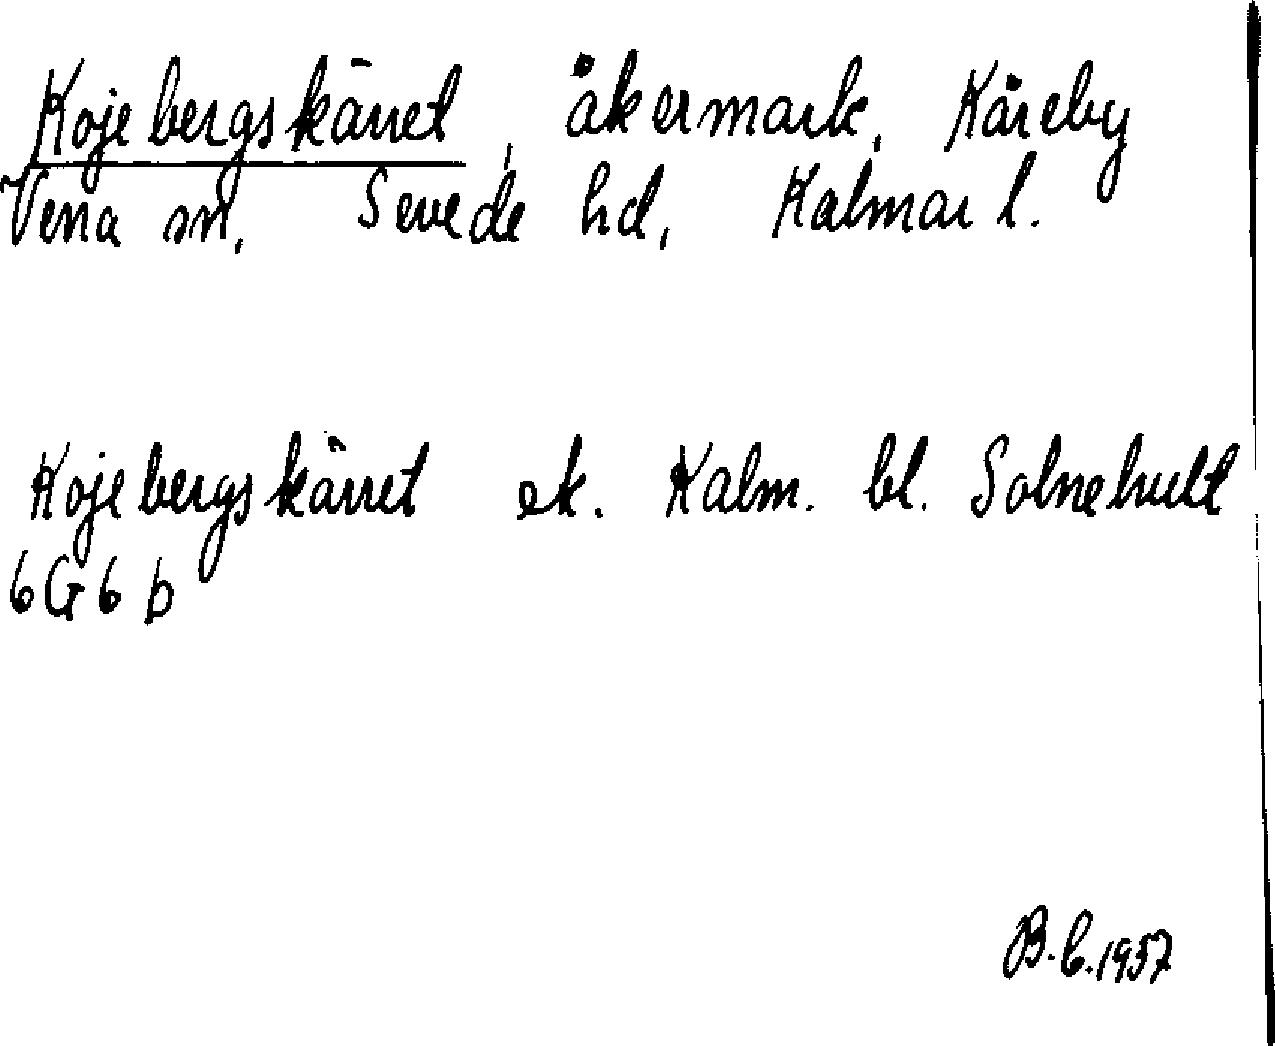 Kojebergskärret, åkermark, Kåreby
Vena sn, Sevede hd, Kalmar l.
Kojebergskärret ek. Kalm. bl. Solnehult
6G6b
B.C.1957